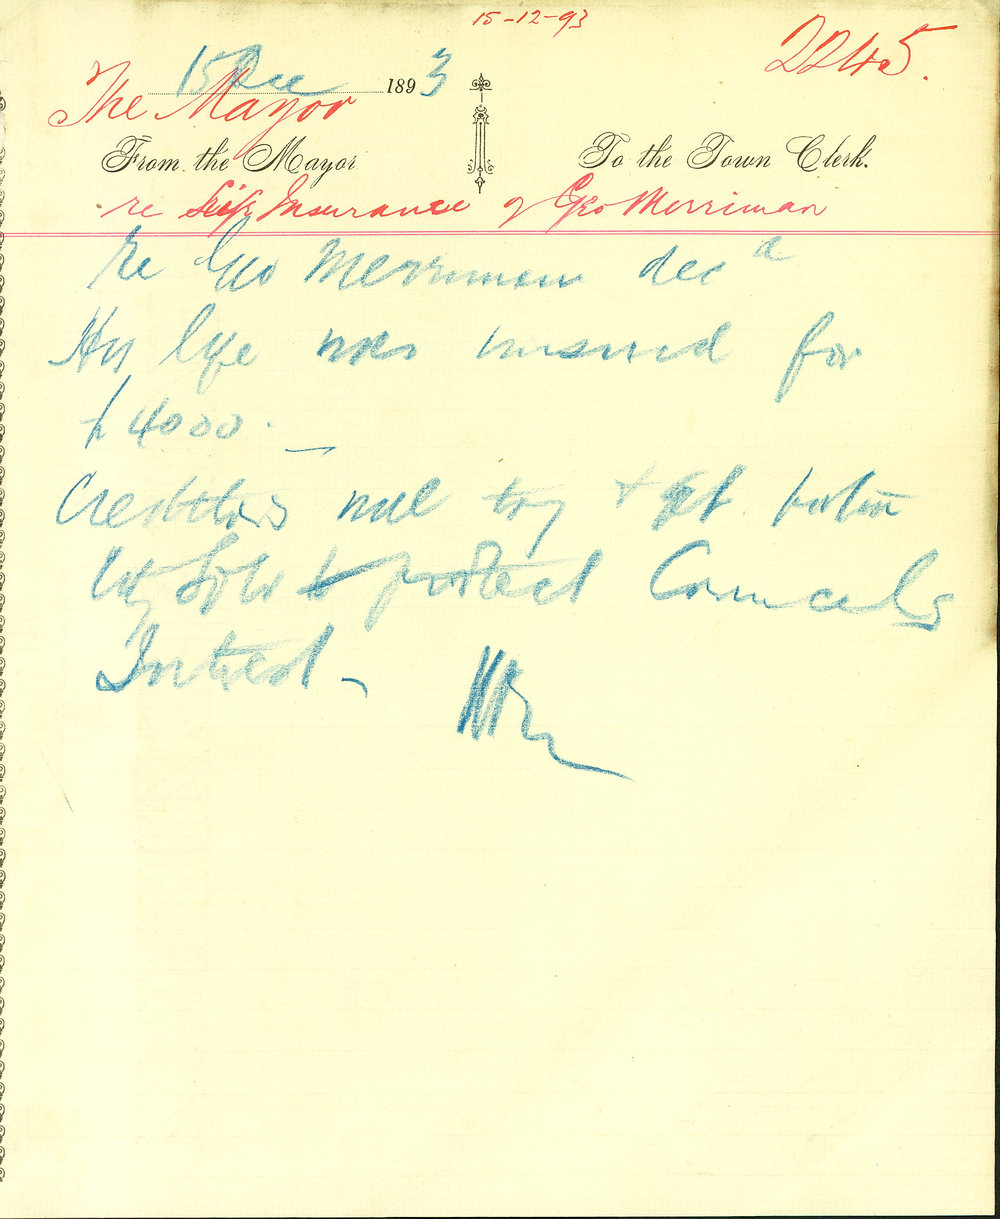 15-12-93
2245.
15 Dec 1893
The Mayor
From the Mayor
To the Town Clerk.
re Life Insurance of Geo Merriman
Re Geo Merriman dec d
His life was insured for
£4000. —
Creditors will try & get
City Solr to protect Councils
Interest -